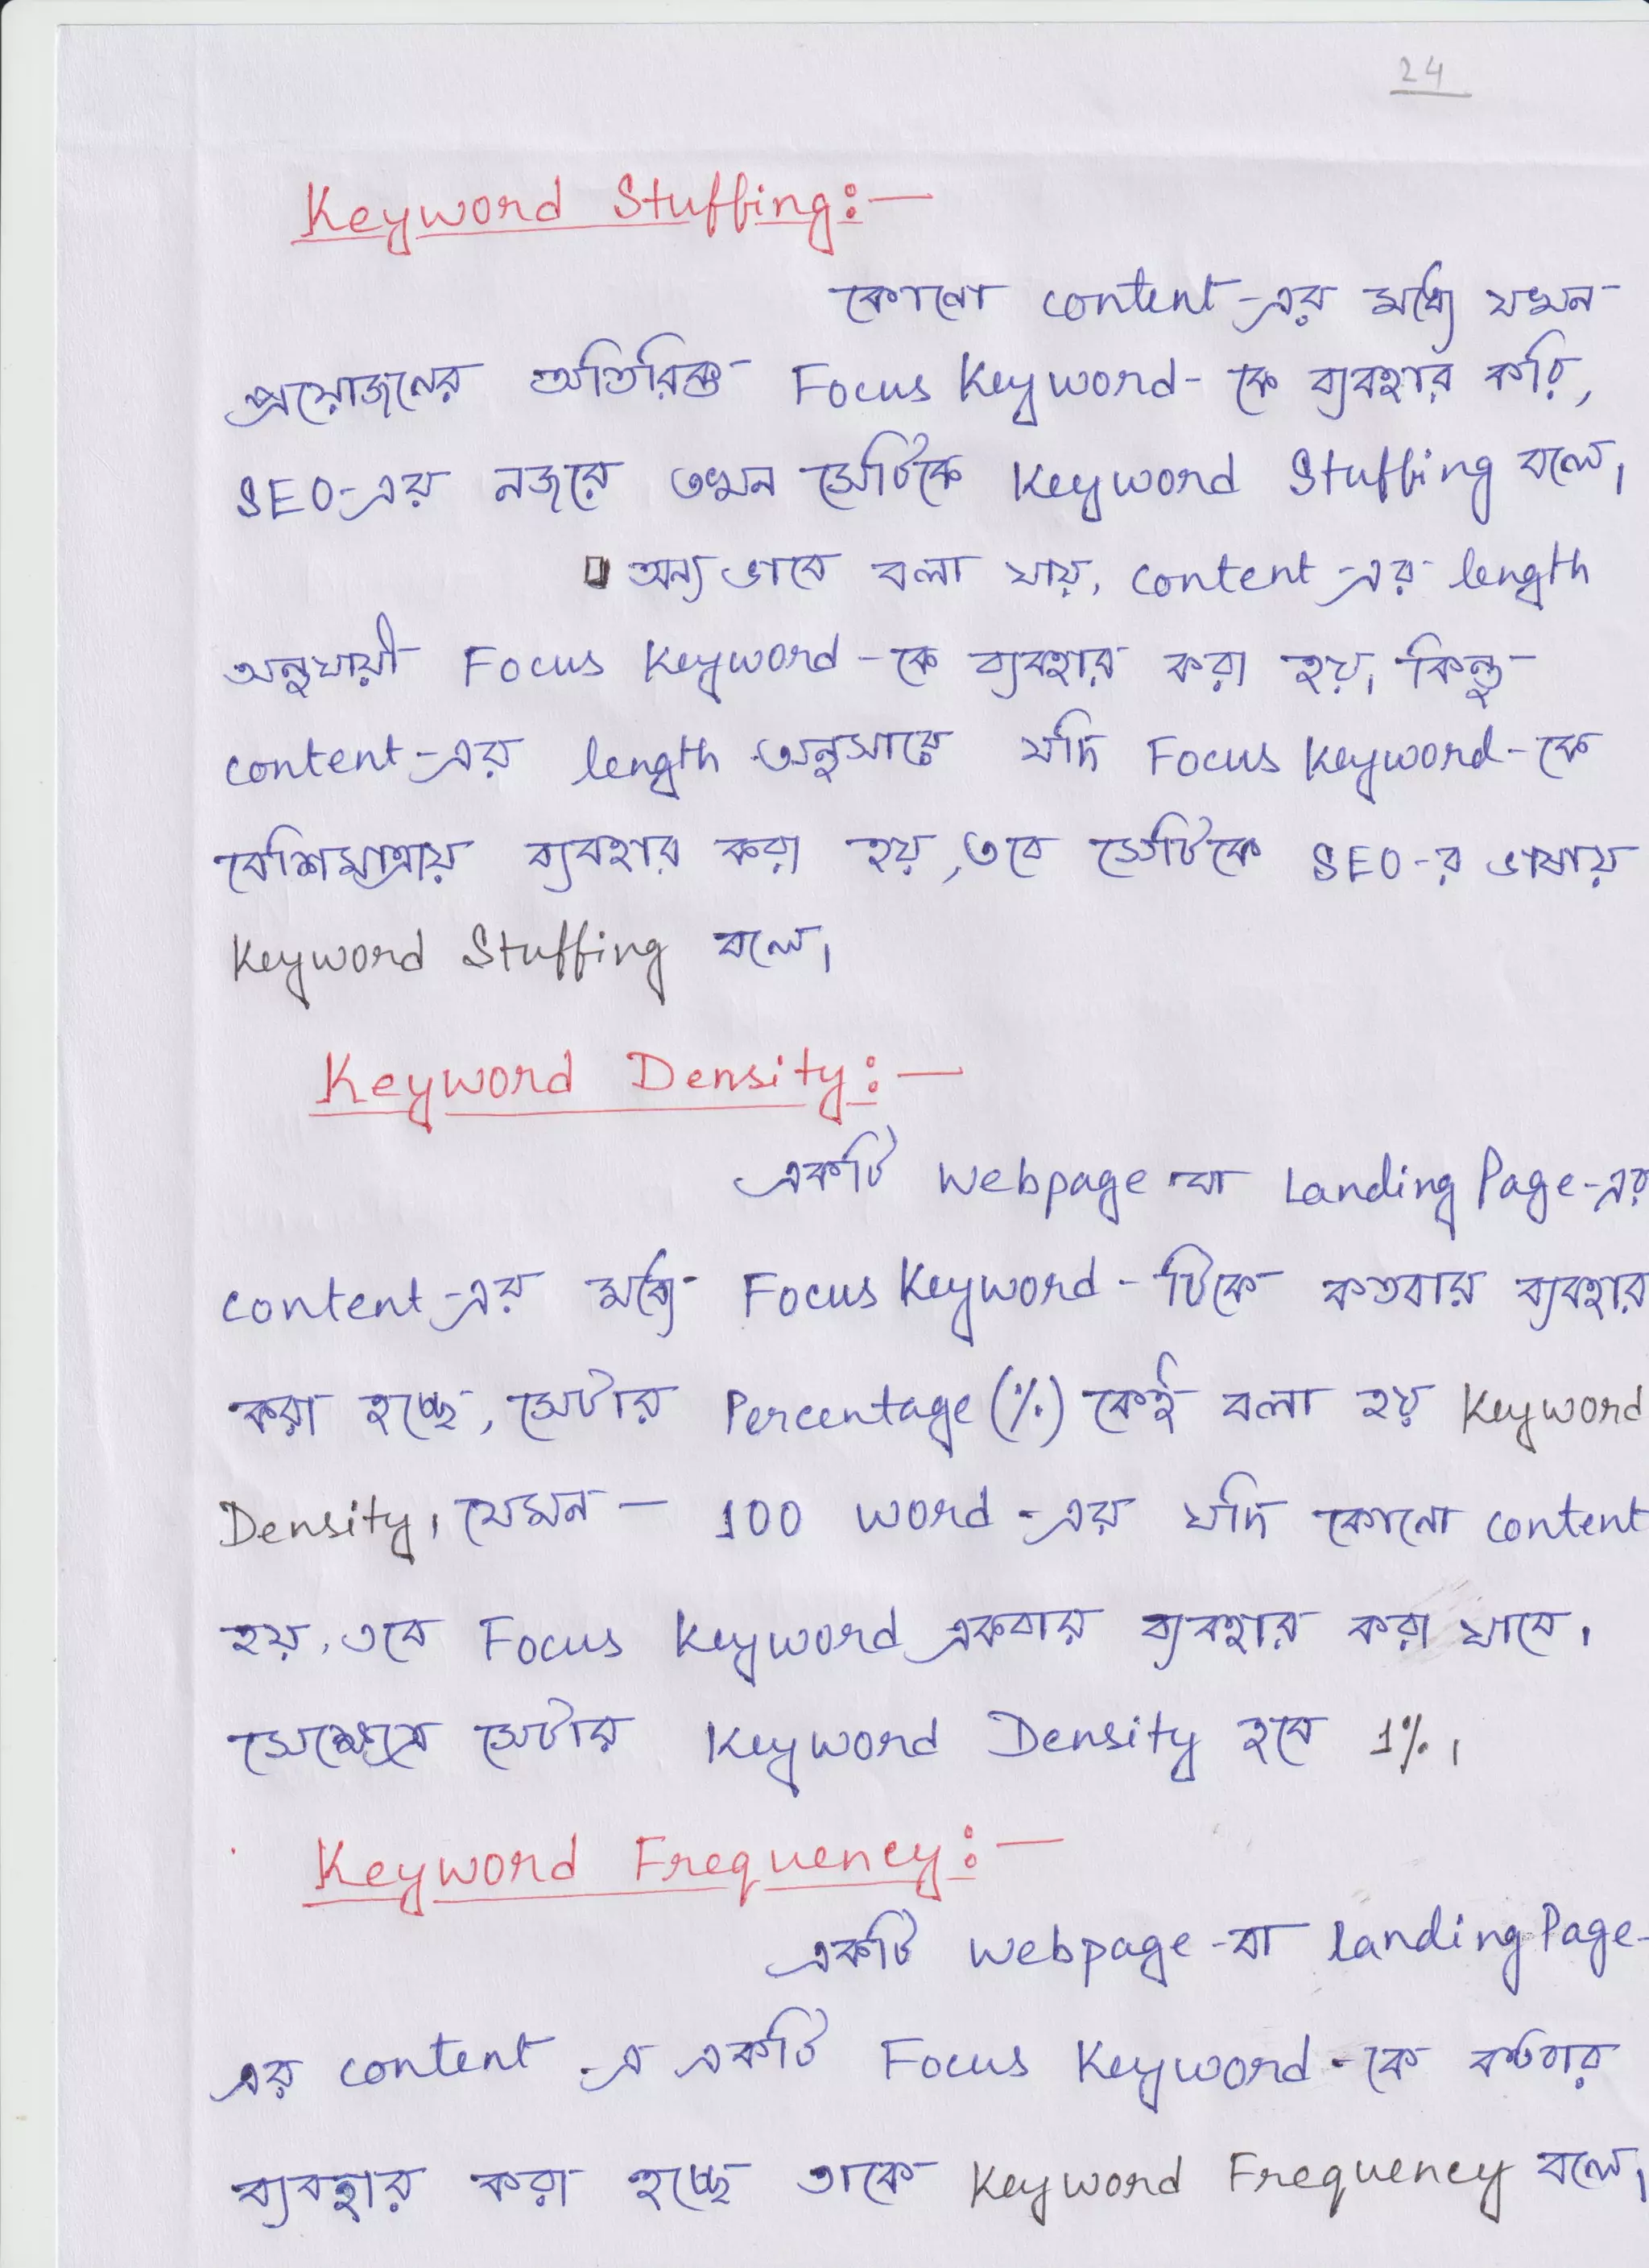 24
Keyword Stuffing:—
কোনো content-এর মধ্যে যখন
প্রয়োজনের অতিরিক্ত Focus Keyword-কে ব্যবহার করি,
SEO-এর নজরে তখন সেটিকে Keyword Stuffing বলে।
অন্য ভাবে বলা যায়, content-এর length
অনুযায়ী Focus Keyword-কে ব্যবহার করা হয়। কিন্তু
content-এর length অনুসারে যদি Focus Keyword-কে
বেশিমাত্রায় ব্যবহার করা হয়, তবে সেটিকে SEO-র ভাষায়
Keyword Stuffing বলে।
Keyword Density:—
একটি Webpage বা Landing Page-এর
content-এর মধ্যে Focus Keyword-টিকে কতবার ব্যবহার
করা হচ্ছে, সেটার Percentage (%) কেই বলা হয় Keyword
Density। যেমন— 100 word-এর যদি কোনো content
হয়, তবে Focus Keyword একবার ব্যবহার করা যাবে।
সেক্ষেত্রে সেটার Keyword Density হবে 1%।
Keyword Frequency:—
একটি webpage-বা landing Page-
এর content-এ একটি Focus Keyword-কে কতবার
ব্যবহার করা হচ্ছে তাকে Keyword Frequency বলে।